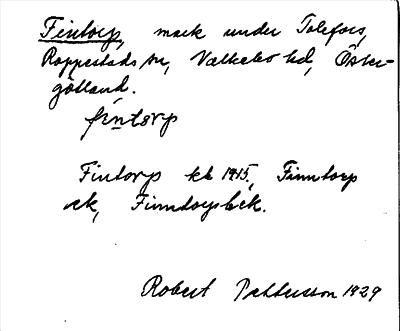 Fintorp, mark under Tolefors,
Rappestads sn, Valkebo hd, Öster-
götland.
fintorp
Fintorp kb 1915, Finntorp
ek, Finntorpsbck.
Robert Pettersson 1929